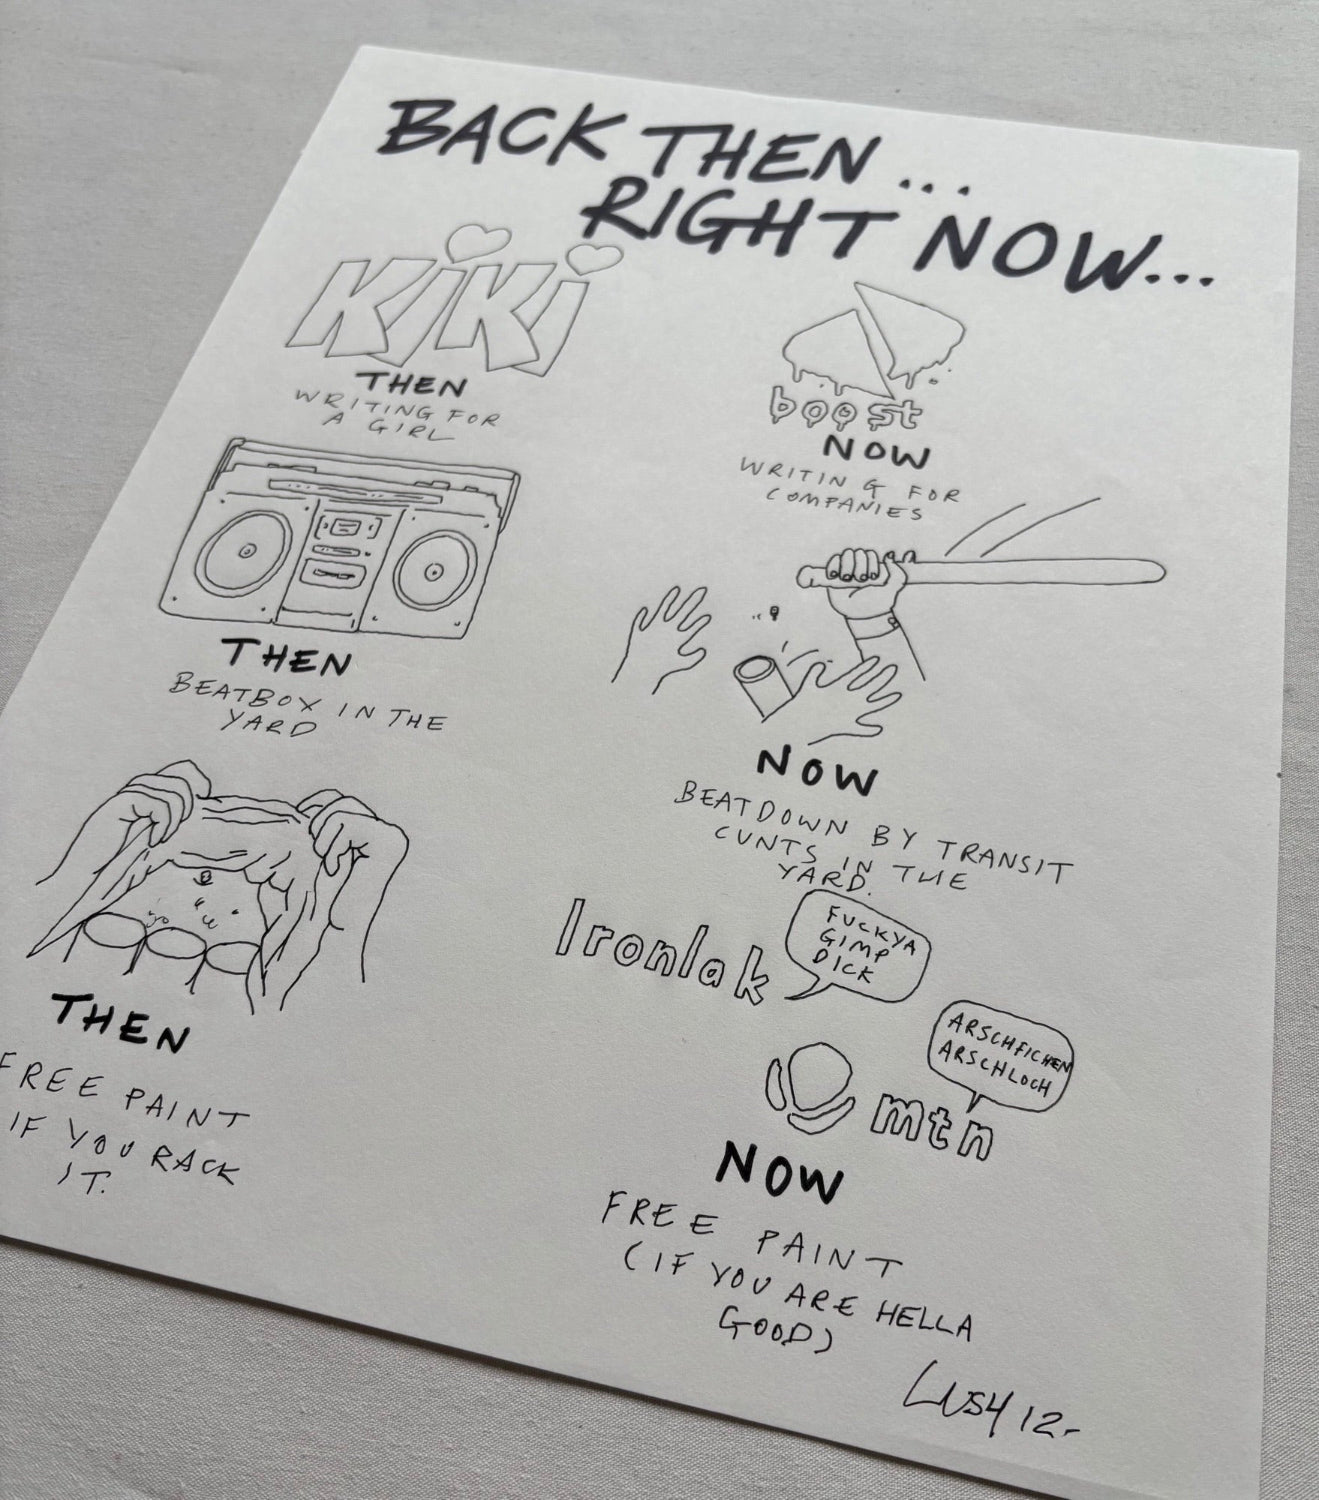 BACK THEN...
RIGHT NOW...
KiKi
THEN
WRITING FOR
A GIRL
boost
NOW
WRITING FOR
COMPANIES
THEN
BEATBOX IN THE
YARD
NOW
BEATDOWN BY TRANSIT
CUNTS IN THE
YARD.
THEN
FREE PAINT
IF YOU RACK
IT.
Ironlak
FUCKYA
GIMP
DICK
mtn
ARSCHFICHEN
ARSCHLOCH
NOW
FREE PAINT
(IF YOU ARE HELLA
GOOD)
LUSH 12-